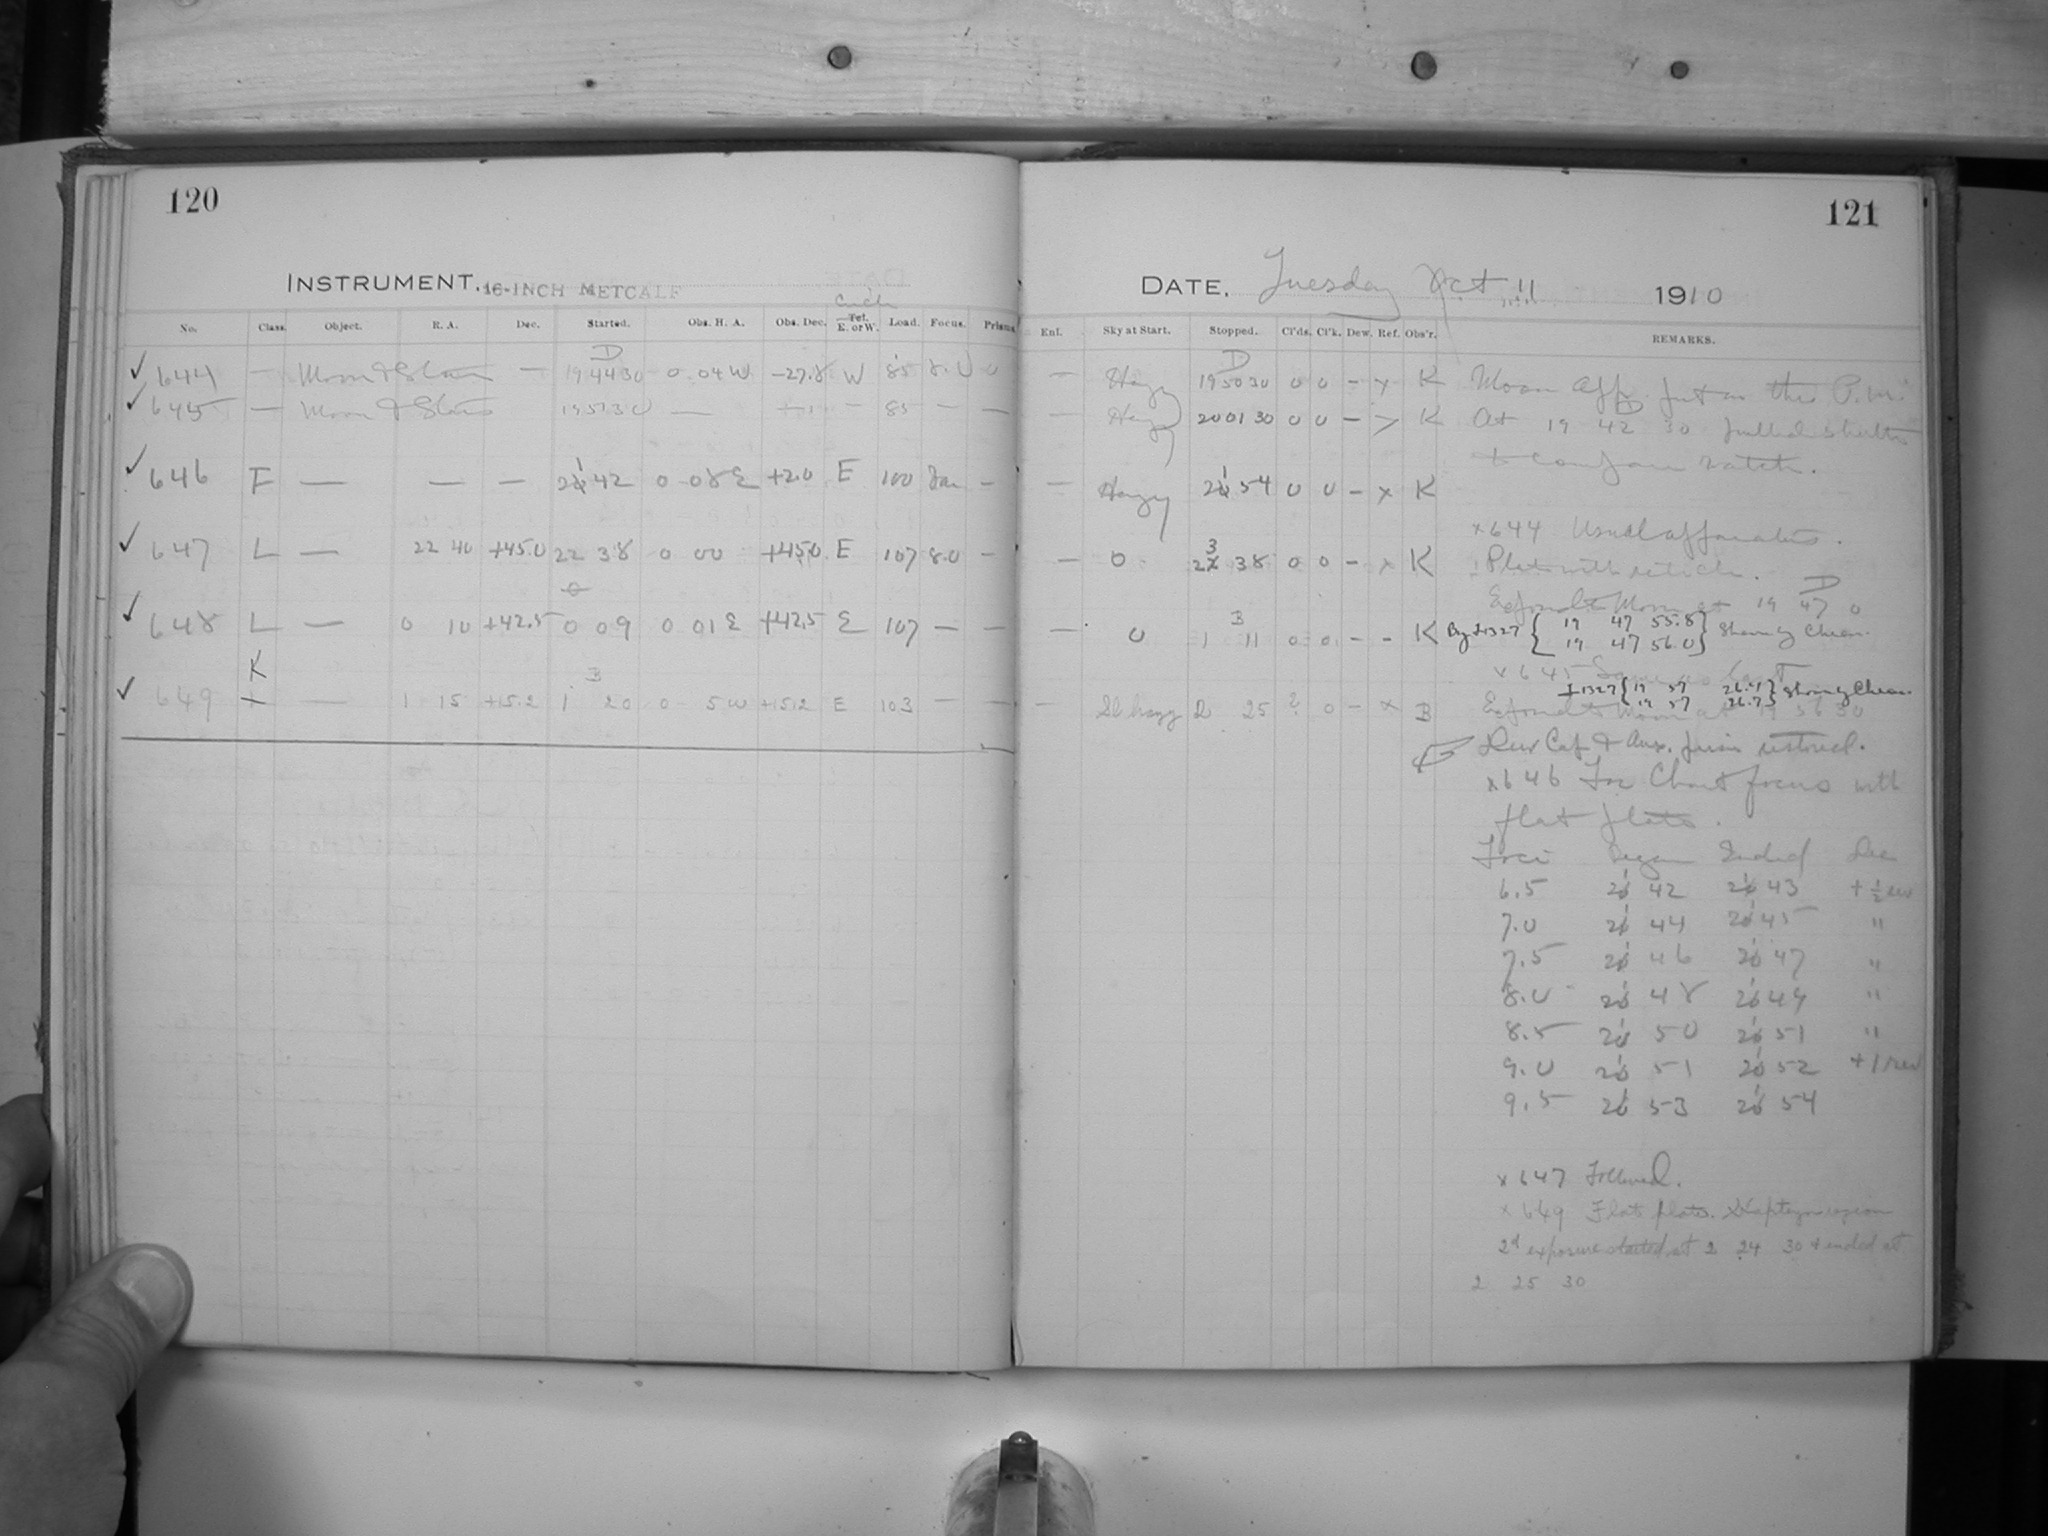 120
INSTRUMENT. 16-INCH METCALF
Circle
No. Class. Object. R. A. Dec. Started. Obs. H. A. Obs. Dec. Tel. E. or W. Load. Focus. Prisms
D
✓ 644 — Moon & Stars — 19 44 30 0 04 W −27.8 W 85 8.0 0
✓ 645 — Moon & Stars 19 57 30 — — 85 — —
✓ 646 F — — — 21 42 0 08 E +2.0 E 100 —
✓ 647 L — 22 40 +45.0 22 38 0 00 +45.0 E 107 8.0 —
✓ 648 L — 0 10 +42.5 0 09 0 01 E +42.5 E 107 — —
K
B
✓ 649 — 1 15 +15.2 1 20 0 5 W +15.2 E 103 — —
121
DATE. Tuesday Oct 11 1910
Enl. Sky at Start. Stopped. Cl'ds. Cl'k. Dew. Ref. Obs'r. REMARKS.
D
— Hazy 19 50 30 0 0 — x K Moon App. just as this P.M.
— Hazy 20 01 30 0 0 — K At 19 42 30 pulled shutter
to
— Hazy 21 54 0 0 — x K
x 644 Usual apparatus.
— 0 23 38 0 0 — x K Plate with
D
Exposed to Moon at 19 47 0
B
— 0 1 11 0 0 - - K By I 1327 { 19 47 55.8
19 47 56.0 }
x 645 Same as last
I 1327 { 19 57 26.4
19 57 26.7 }
— Sl hazy 2 25 ? 0 — x B Exposed to Moon at 19 56 30
Dew Cap & Aux. restored.
x 646 For Chart focus with
flat plate.
Foci Began Ended Dec
6.5 21 42 21 43 + ½ rev
7.0 21 44 21 45 "
7.5 21 46 21 47 "
8.0 21 48 21 49 "
8.5 21 50 21 51 "
9.0 21 51 21 52 + 1 rev
9.5 21 53 21 54
x 647 Followed.
x 649 Flat plate. Kapteyn region
2d exposure started at 2 24 30 & ended at
2 25 30